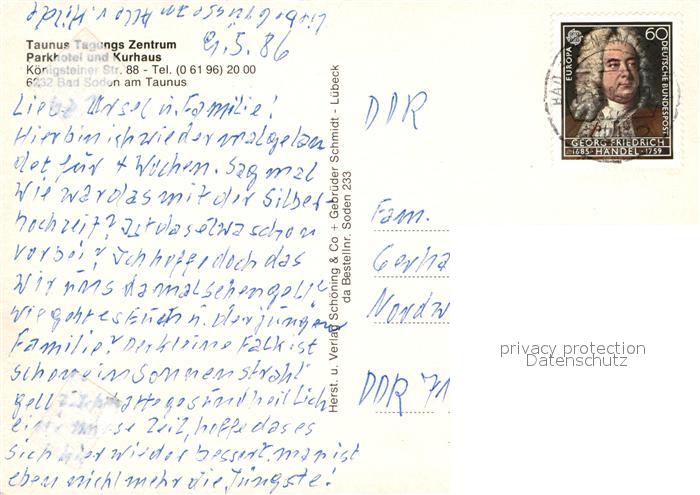 Liebe Grüsse an Alle v. Hilde
9.5.86
Taunus Tagungs Zentrum
Parkhotel und Kurhaus
Königsteiner Str. 88 - Tel. (0 61 96) 20 00
6232 Bad Soden am Taunus
Liebe Ursel u. Familie!
Hier bin ich wieder mal gelan
det für 4 Wochen. Sag mal
wie war das mit der Silber-
hochzeit? Ist das etwa schon
vorbei? Ich hoffe doch das
wir uns da mal sehen gell!
wie geht es Euch u. der jungen
Familie? Der kleine Falk ist
schon ein Sonnenstrahl
gell? Ich hatte gesundheitlich
eine Zeit, hoffe das es
sich hier wieder bessert. man ist
eben nicht mehr die Jüngste!
Herst. u. Verlag Schöning & Co + Gebrüder Schmidt - Lübeck
da Bestellnr. Soden 233
EUROPA
60
DEUTSCHE BUNDESPOST
GEORG FRIEDRICH
1685 · HÄNDEL · 1759
DDR
Fam.
Gerha
Nordw
DDR 71
privacy protection
Datenschutz